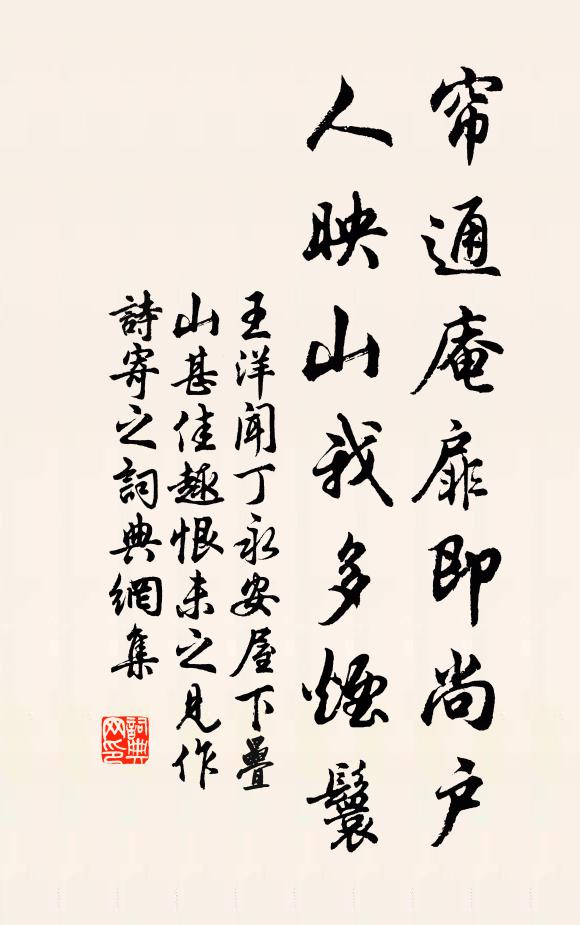 帘通庵扉即尚户
人映山我多烟鬟
王洋闻丁永安屋下疊
山甚佳趣恨未之见作
詩寄之詞典網集
詞典网印